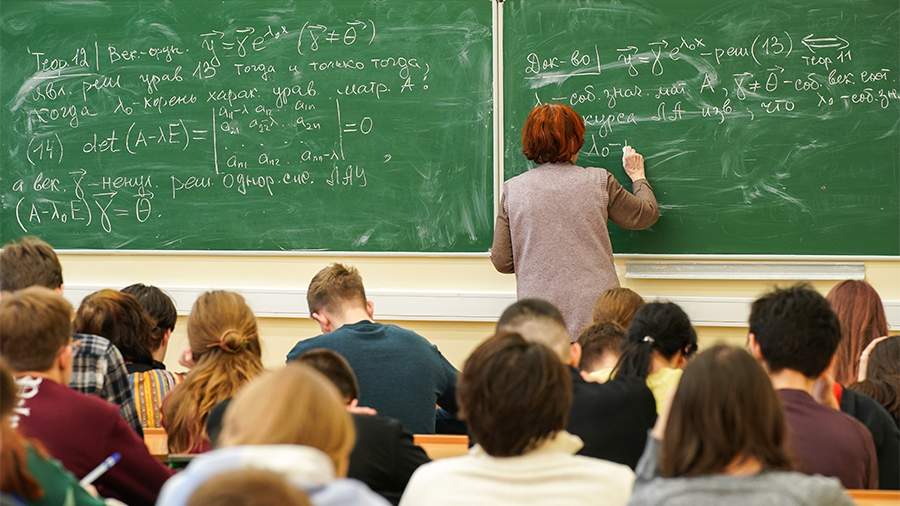 Теор 12 | Век-функ. y⃗ = γ⃗ e^λ₀x (γ⃗ ≠ θ⃗)
явл. реш. урав. 13 тогда и только тогда,
когда λ₀-корень харак. урав. матр. A:
(14) det (A-λE) = | a₁₁-λ a₁₂ ... a₁ₙ | = 0
a₂₁ a₂₂-λ ... a₂ₙ
aₙ₁ aₙ₂ ... aₙₙ-λ
а век. γ⃗ - ненул. реш. однор. сис. ЛАУ,
(A-λ₀E) γ⃗ = θ⃗.
Док-во | y⃗ = γ⃗ e^λ₀x - реш (13) ⟺
теор 11
λ₀-соб. знач. мат A, γ⃗ ≠ θ⃗ - соб. век. соот.
курса ЛА изв., что λ₀ - соб. зн.
λ₀-